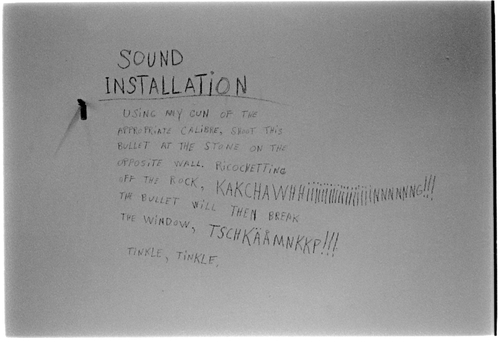 SOUND
INSTALLATION
USING MY GUN OF THE
APPROPRIATE CALIBRE, SHOOT THIS
BULLET AT THE STONE ON THE
OPPOSITE WALL. RICOCKETTING
OFF THE ROCK, KAKCHAWHHiiiiiiiiiiiiiiiiiiNNNNNNG!!!
THE BULLET WILL THEN BREAK
THE WINDOW, TSCHKÄÄMNKKP!!!
TINKLE, TINKLE.